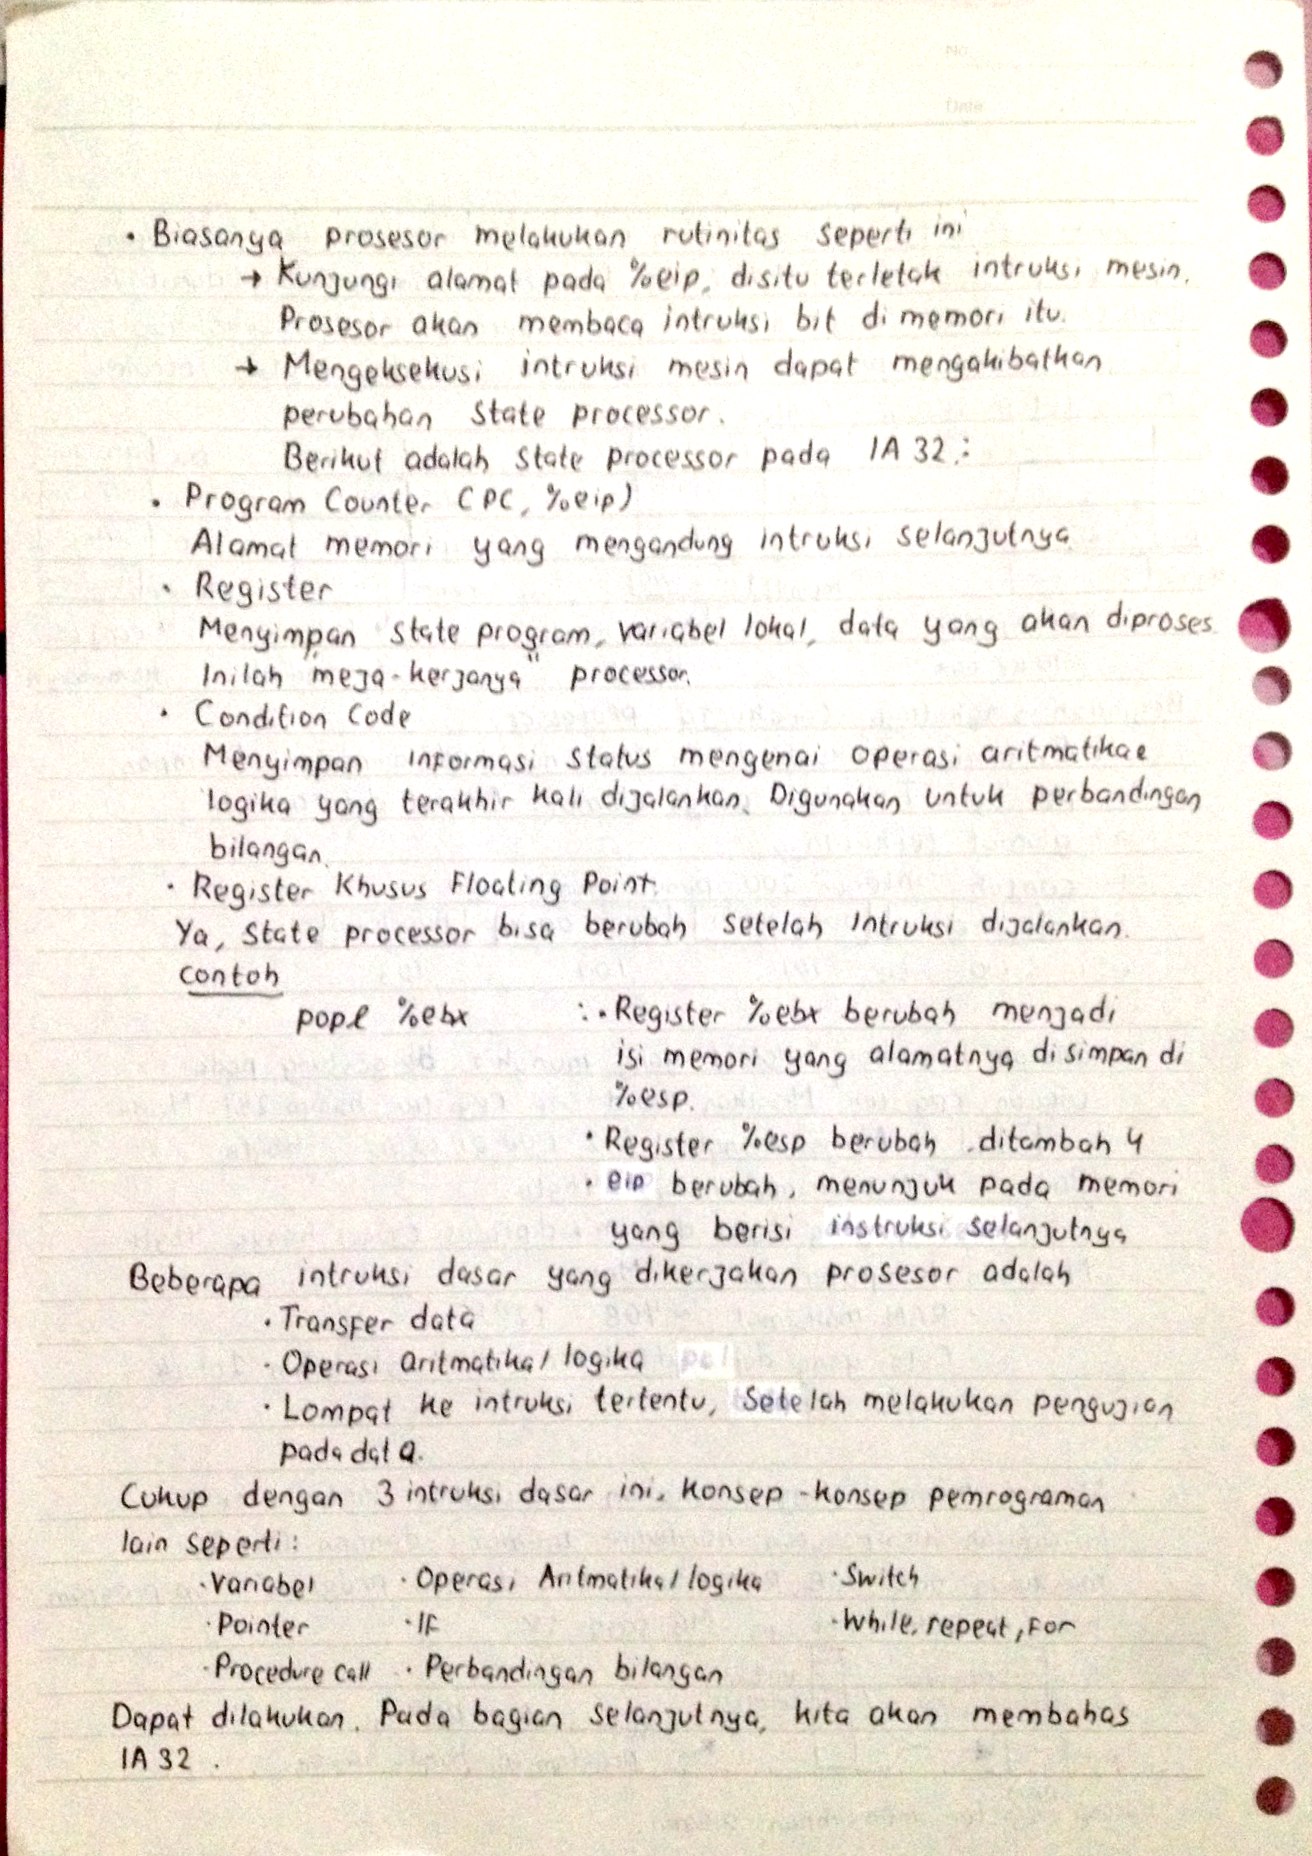 No
Date
• Biasanya prosesor melakukan rutinitas seperti ini
→ Kunjungi alamat pada %eip, disitu terletak intruksi mesin.
Prosesor akan membaca intruksi bit di memori itu.
→ Mengeksekusi intruksi mesin dapat mengakibatkan
perubahan state processor.
Berikut adalah state processor pada IA 32 :
• Program Counter (PC, %eip)
Alamat memori yang mengandung intruksi selanjutnya
• Register
Menyimpan state program, variabel lokal, data yang akan diproses
Inilah "meja-kerjanya" processor.
• Condition Code
Menyimpan informasi status mengenai operasi aritmatika e
logika yang terakhir kali dijalankan. Digunakan untuk perbandingan
bilangan.
• Register Khusus Floating Point.
Ya, State processor bisa berubah setelah intruksi dijalankan.
Contoh
popl %ebx : • Register %ebx berubah menjadi
isi memori yang alamatnya disimpan di
%esp.
• Register %esp berubah, ditambah 4
• eip berubah, menunjuk pada memori
yang berisi instruksi selanjutnya
Beberapa intruksi dasar yang dikerjakan prosesor adalah
• Transfer data
• Operasi aritmatika/logika
• Lompat ke intruksi tertentu, setelah melakukan pengujian
pada data.
Cukup dengan 3 intruksi dasar ini, konsep-konsep pemrograman
lain seperti :
• Variabel • Operasi Aritmatika/logika • Switch
• Pointer • IF • While, repeat, For
• Procedure call • Perbandingan bilangan
Dapat dilakukan. Pada bagian selanjutnya, kita akan membahas
IA 32 .